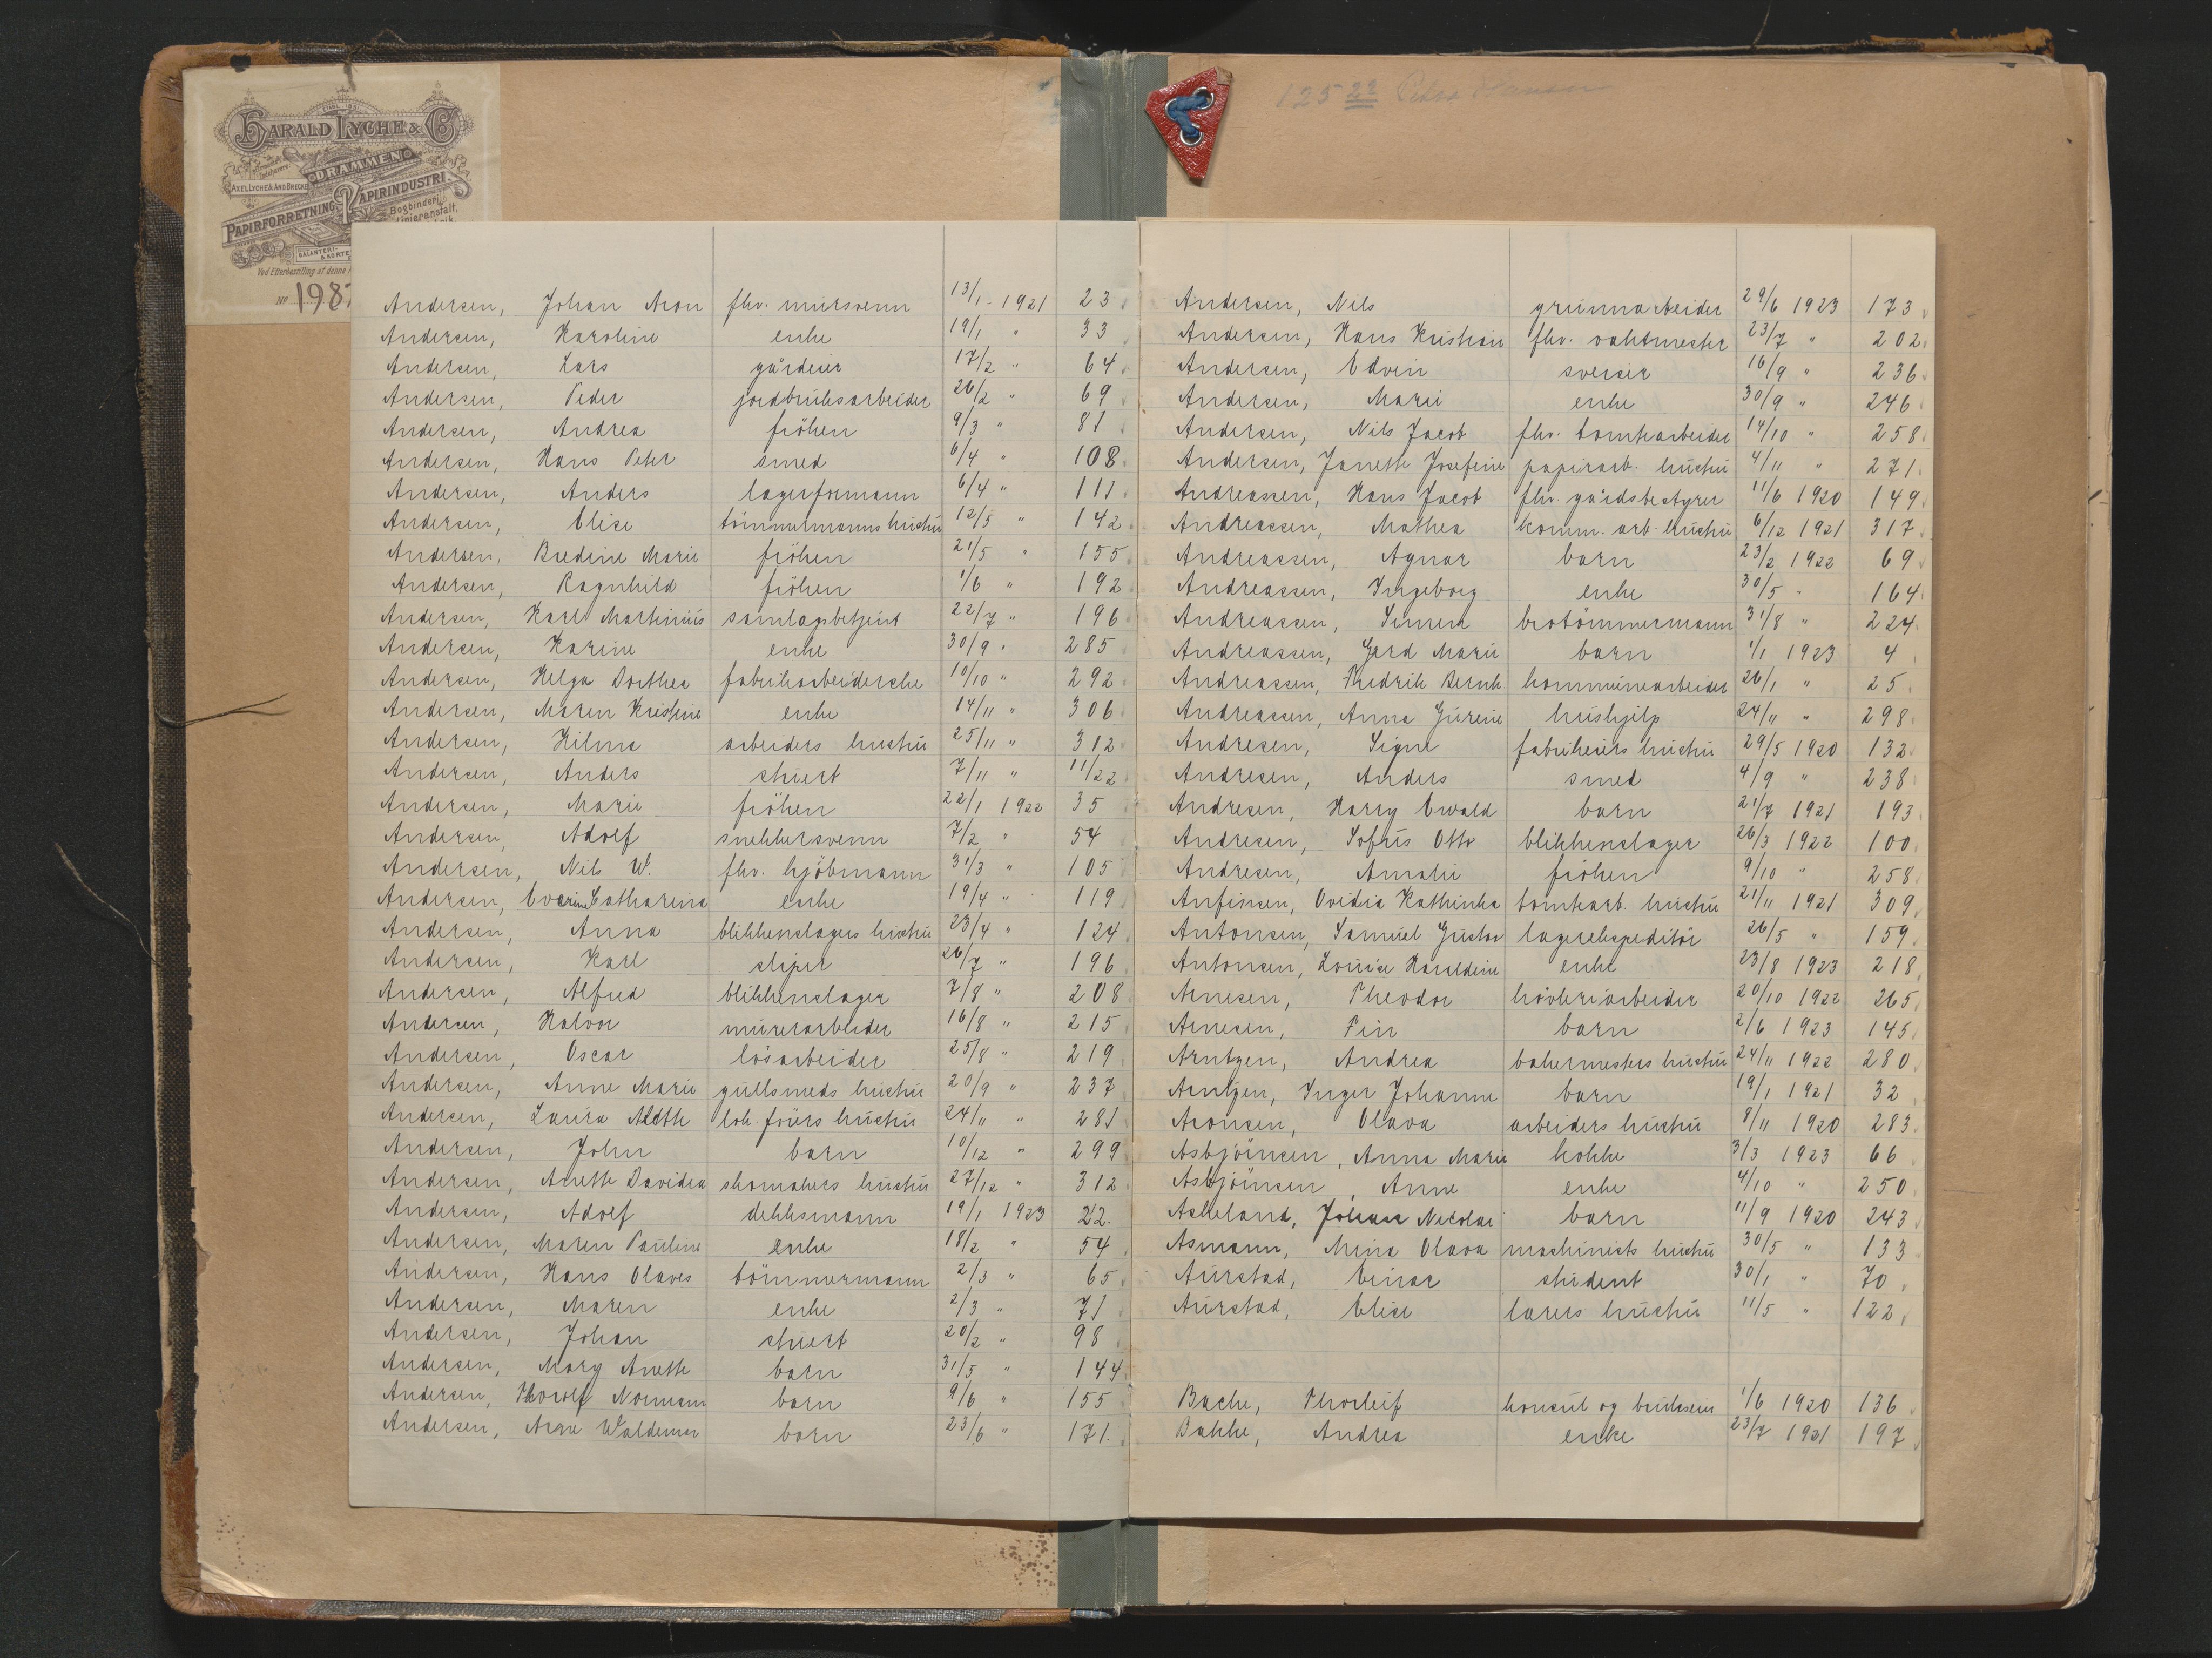 HARALD LYCHE & Co
DRAMMEN
AXEL LYCHE & AND. BRECKE
PAPIRFORRETNING PAPIRINDUSTRI
Bogbinderi,
Linieranstalt,
GALANTERI-
& KORTE
Ved Efterbestilling af denne
No 1987
125 22
Andersen, Johan Aron fhv. mursvenn 13/1 - 1921 23
Andersen, Karoline enke 19/1 " 33
Andersen, Lars gårdeier 17/2 " 64
Andersen, Peder jordbruksarbeider 26/2 " 69
Andersen, Andrea fröken 9/3 " 81
Andersen, Hans Peter smed 6/4 " 108
Andersen, Anders lagerformann 6/4 " 111
Andersen, Elise tömmermanns hustru 12/5 " 142
Andersen, Bredine Marie fröken 21/5 " 155
Andersen, Ragnhild fröken 1/6 " 192
Andersen, Karl Martinius samlagsbetjent 22/7 " 196
Andersen, Karine enke 30/9 " 285
Andersen, Helga Dorthea fabrikarbeiderske 10/10 " 292
Andersen, Maren Kristine enke 14/11 " 306
Andersen, Hilma arbeiders hustru 25/11 " 312
Andersen, Anders stuert 7/11 " 11/22
Andersen, Marie fröken 22/1 1922 35
Andersen, Adolf snekkersvenn 7/2 " 54
Andersen, Nils W. fhv. kjöbmann 31/3 " 105
Andersen, Everine Catharina enke 19/4 " 119
Andersen, Anna blikkenslagers hustru 23/4 " 124
Andersen, Karl sliper 26/7 " 196
Andersen, Alfred blikkenslager 7/8 " 208
Andersen, Halvor murerarbeider 16/8 " 215
Andersen, Oscar lösarbeider 25/8 " 219
Andersen, Anne Marie gullsmeds hustru 20/9 " 237
Andersen, Laura Alette lok. förers hustru 24/11 " 281
Andersen, John barn 10/12 " 299
Andersen, Anette Davidea skomakers hustru 27/12 " 312
Andersen, Adolf dekksmann 19/1 1923 22.
Andersen, Maren Pauline enke 18/2 " 54
Andersen, Hans Olaves tömmermann 2/3 " 65
Andersen, Maren enke 2/3 " 71
Andersen, Johan stuert 20/2 " 98
Andersen, Mary Anette barn 31/5 " 144
Andersen, Thorolf Normann barn 9/6 " 155
Andersen, Arne Waldemar barn 23/6 " 171.
Andersen, Nils grunnarbeider 29/6 1923 173
Andersen, Hans Kristian fhv. vaktmester 23/7 " 202
Andersen, Edvin sveiser 16/9 " 236
Andersen, Marie enke 30/9 " 246
Andersen, Nils Jacob fhv. tomtearbeider 14/10 " 258
Andersen, Janette Josefine papirarb. hustru 4/11 " 271
Andreassen, Hans Jacob fhv. gårdsbestyrer 11/6 1920 149
Andreassen, Mathea komm. arb. hustru 6/12 1921 317
Andreassen, Agnar barn 23/2 1922 69
Andreassen, Ingeborg enke 30/5 " 164
Andreassen, Simen brotömmermann 31/8 " 224
Andreassen, Gerd Marie barn 1/1 1923 4
Andreassen, Fredrik Bernh. kommunearbeider 26/1 " 25
Andreassen, Anna Gurine hushjelp 24/11 " 298
Andresen, Signe fabrikeiers hustru 29/5 1920 132
Andresen, Anders smed 4/9 " 238
Andresen, Harry Ewald barn 21/7 1921 193
Andresen, Sofus Otto blikkenslager 26/3 1922 100
Andresen, Amalie fröken 9/10 " 258
Anfinsen, Ovidia Kathinka tomtearb. hustru 21/11 1921 309
Antonsen, Samuel Gustav lagerekspeditör 26/5 " 159
Antonsen, Louise Haraldine enke 23/8 1923 218
Arnesen, Theodor hövleriarbeider 20/10 1922 265
Arnesen, Finn barn 2/6 1923 145
Arntzen, Andrea bakermesters hustru 24/11 1922 280
Arntzen, Inger Johanne barn 19/1 1921 32
Aronsen, Olava arbeiders hustru 8/11 1920 283
Asbjörnsen, Anna Marie kokke 3/3 1923 66
Asbjörnsen, Anne enke 4/10 " 250
Askeland, Johan Nicolai barn 11/9 1920 243
Asmann, Mina Olava maskinists hustru 30/5 " 133
Aurstad, Einar student 30/1 " 70
Aurstad, Elise lærers hustru 11/5 " 122
Bache, Thorleif konsul og brukseier 1/6 1920 136
Bakke, Andrea enke 23/7 1921 197